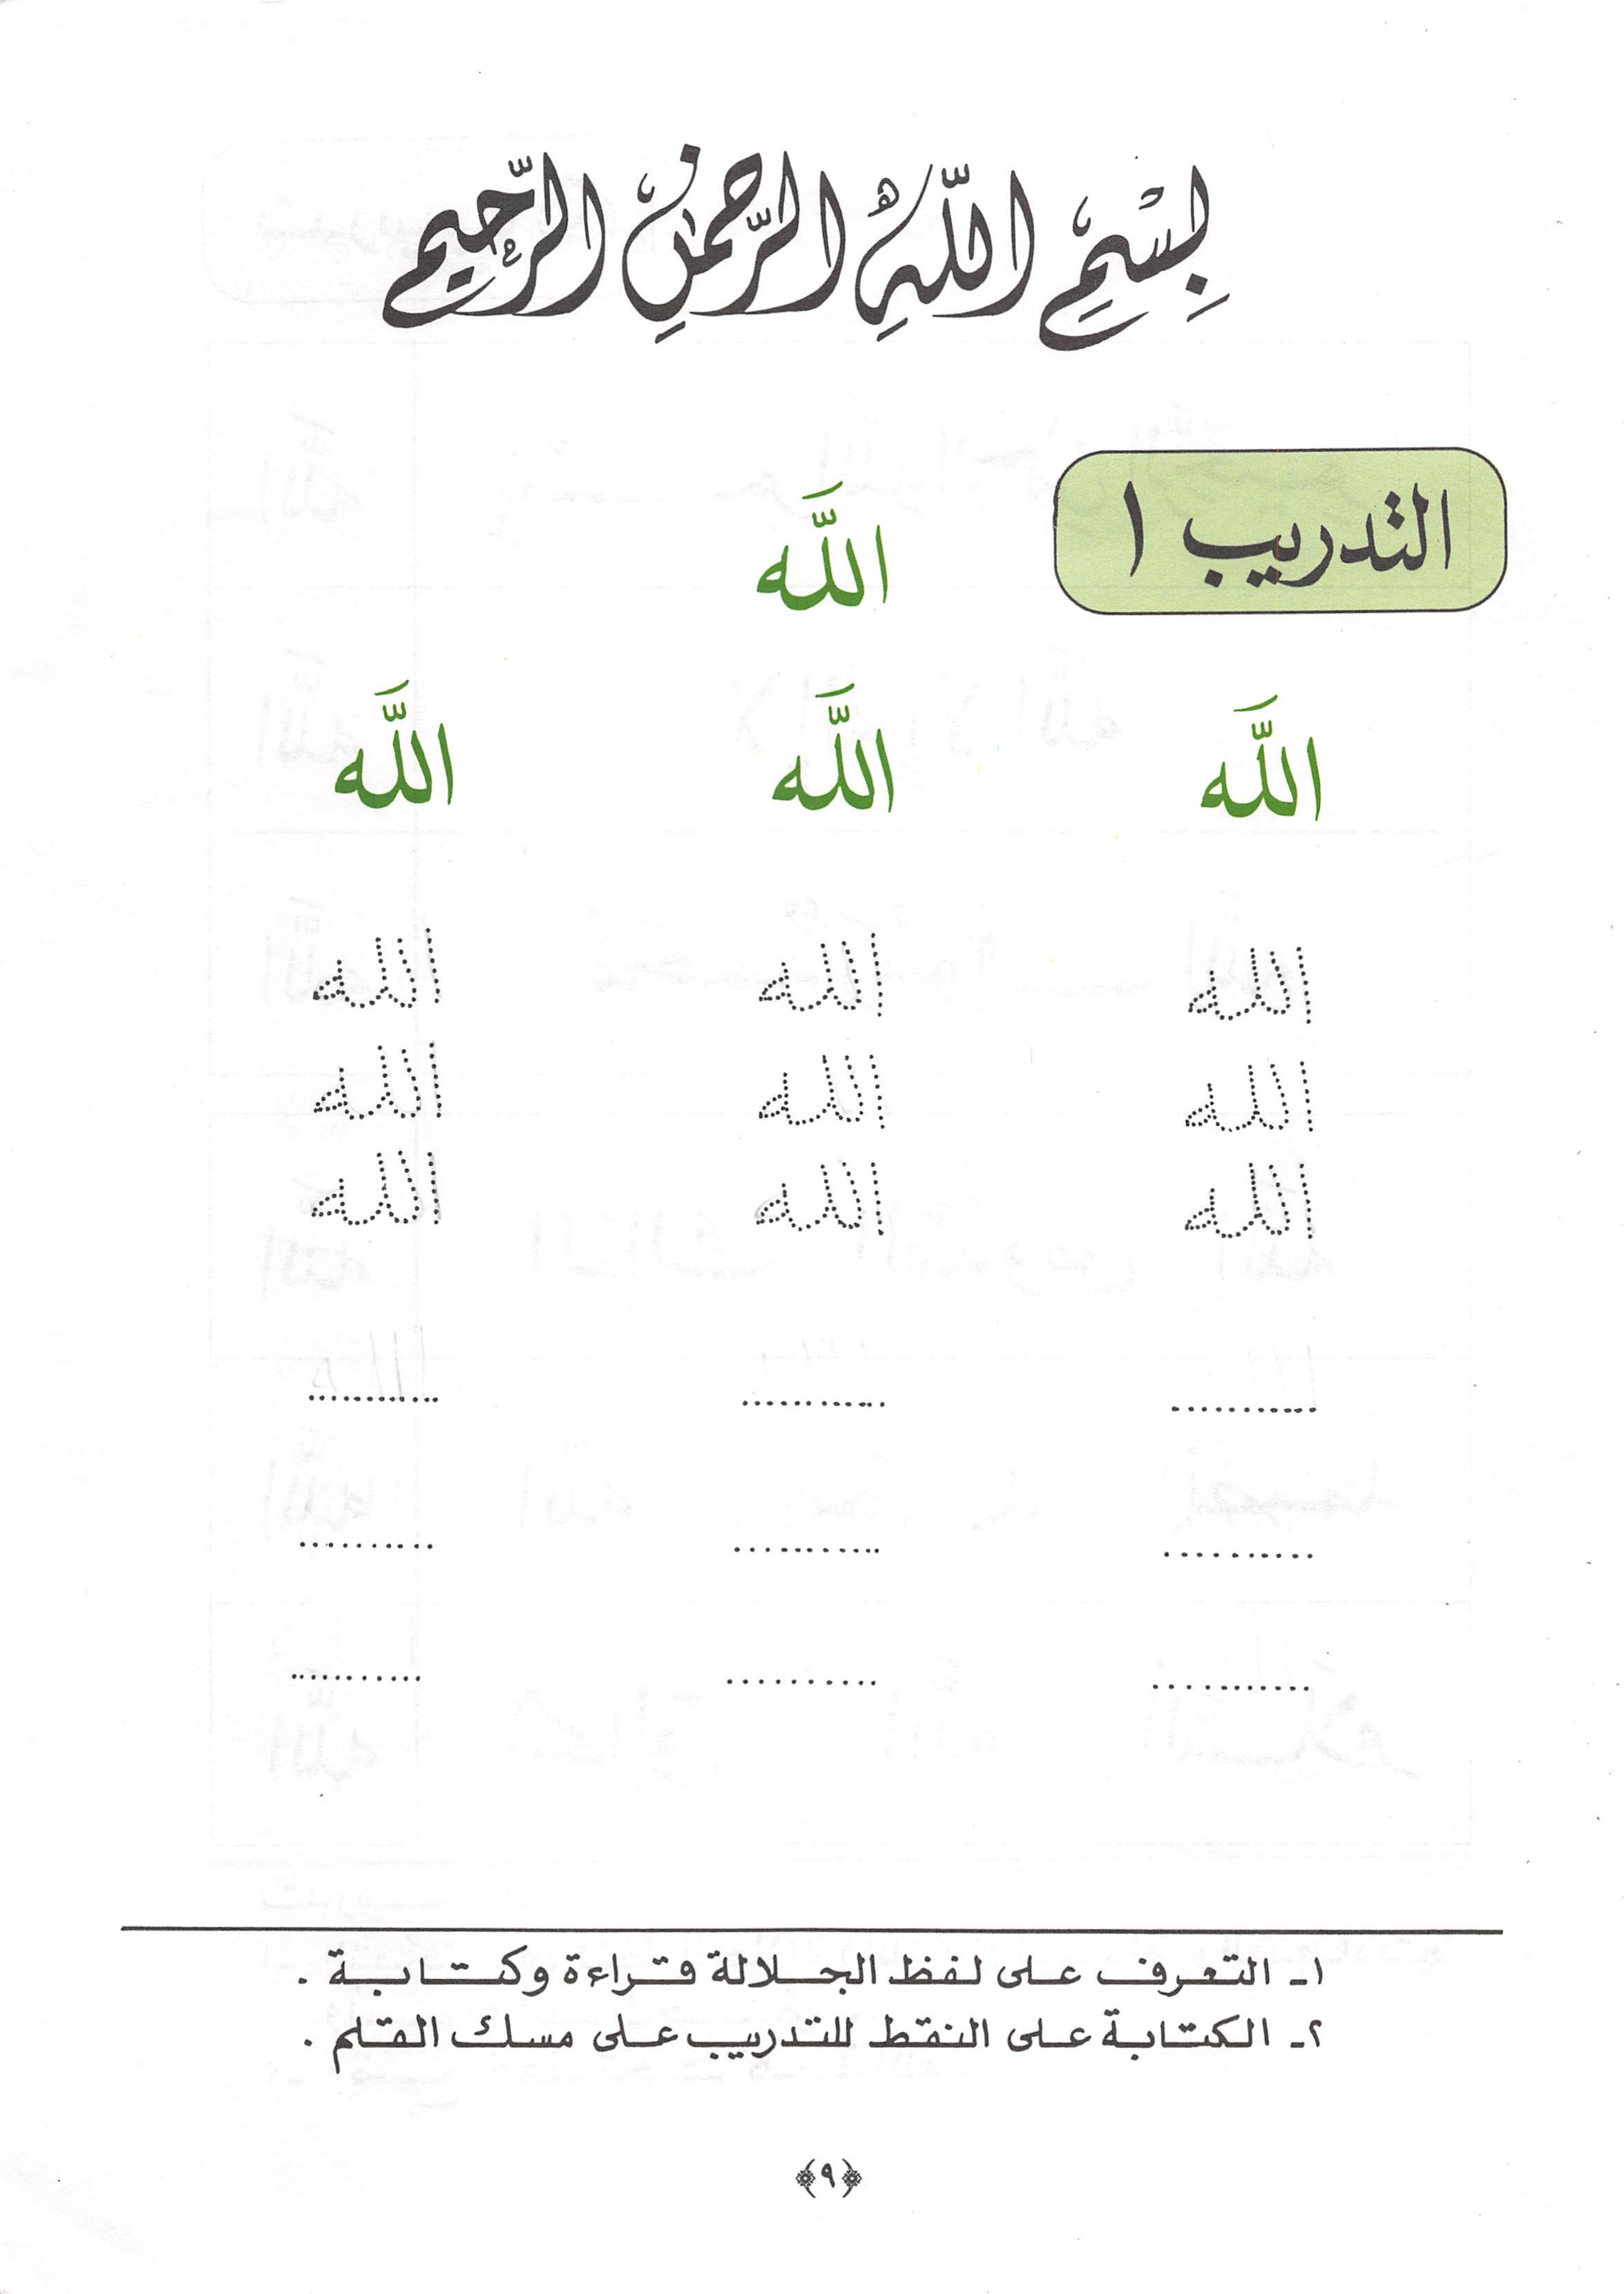 بِسْمِ اللَّهِ الرَّحْمَٰنِ الرَّحِيمِ
التدريب ١
اللَّه
اللَّه اللَّه اللَّه
الله الله الله
الله الله الله
الله الله الله
١ـ التعرف على لفظ الجلالة قراءة وكتابة .
٢ـ الكتابة على النقط للتدريب على مسك القلم .
﴿٩﴾